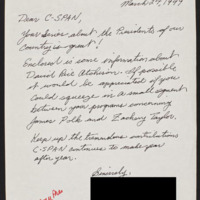 March 24, 1999
Dear C-SPAN,
Your Series about the Presidents of our
Country is great!
Enclosed is some information about
David Rice Atchison. If possible
it would be appreciated if you
could squeeze in a small segment
between your programs concerning
James Polk and Zachary Taylor.
Keep up the tremendous contributions
C-SPAN continues to make year
after year.
Sincerely,